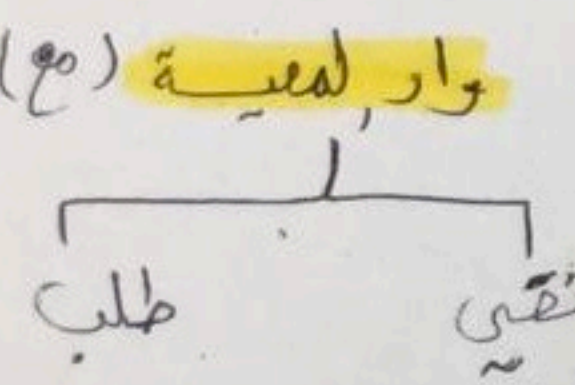 واو المعية (مع)
نفي طلب